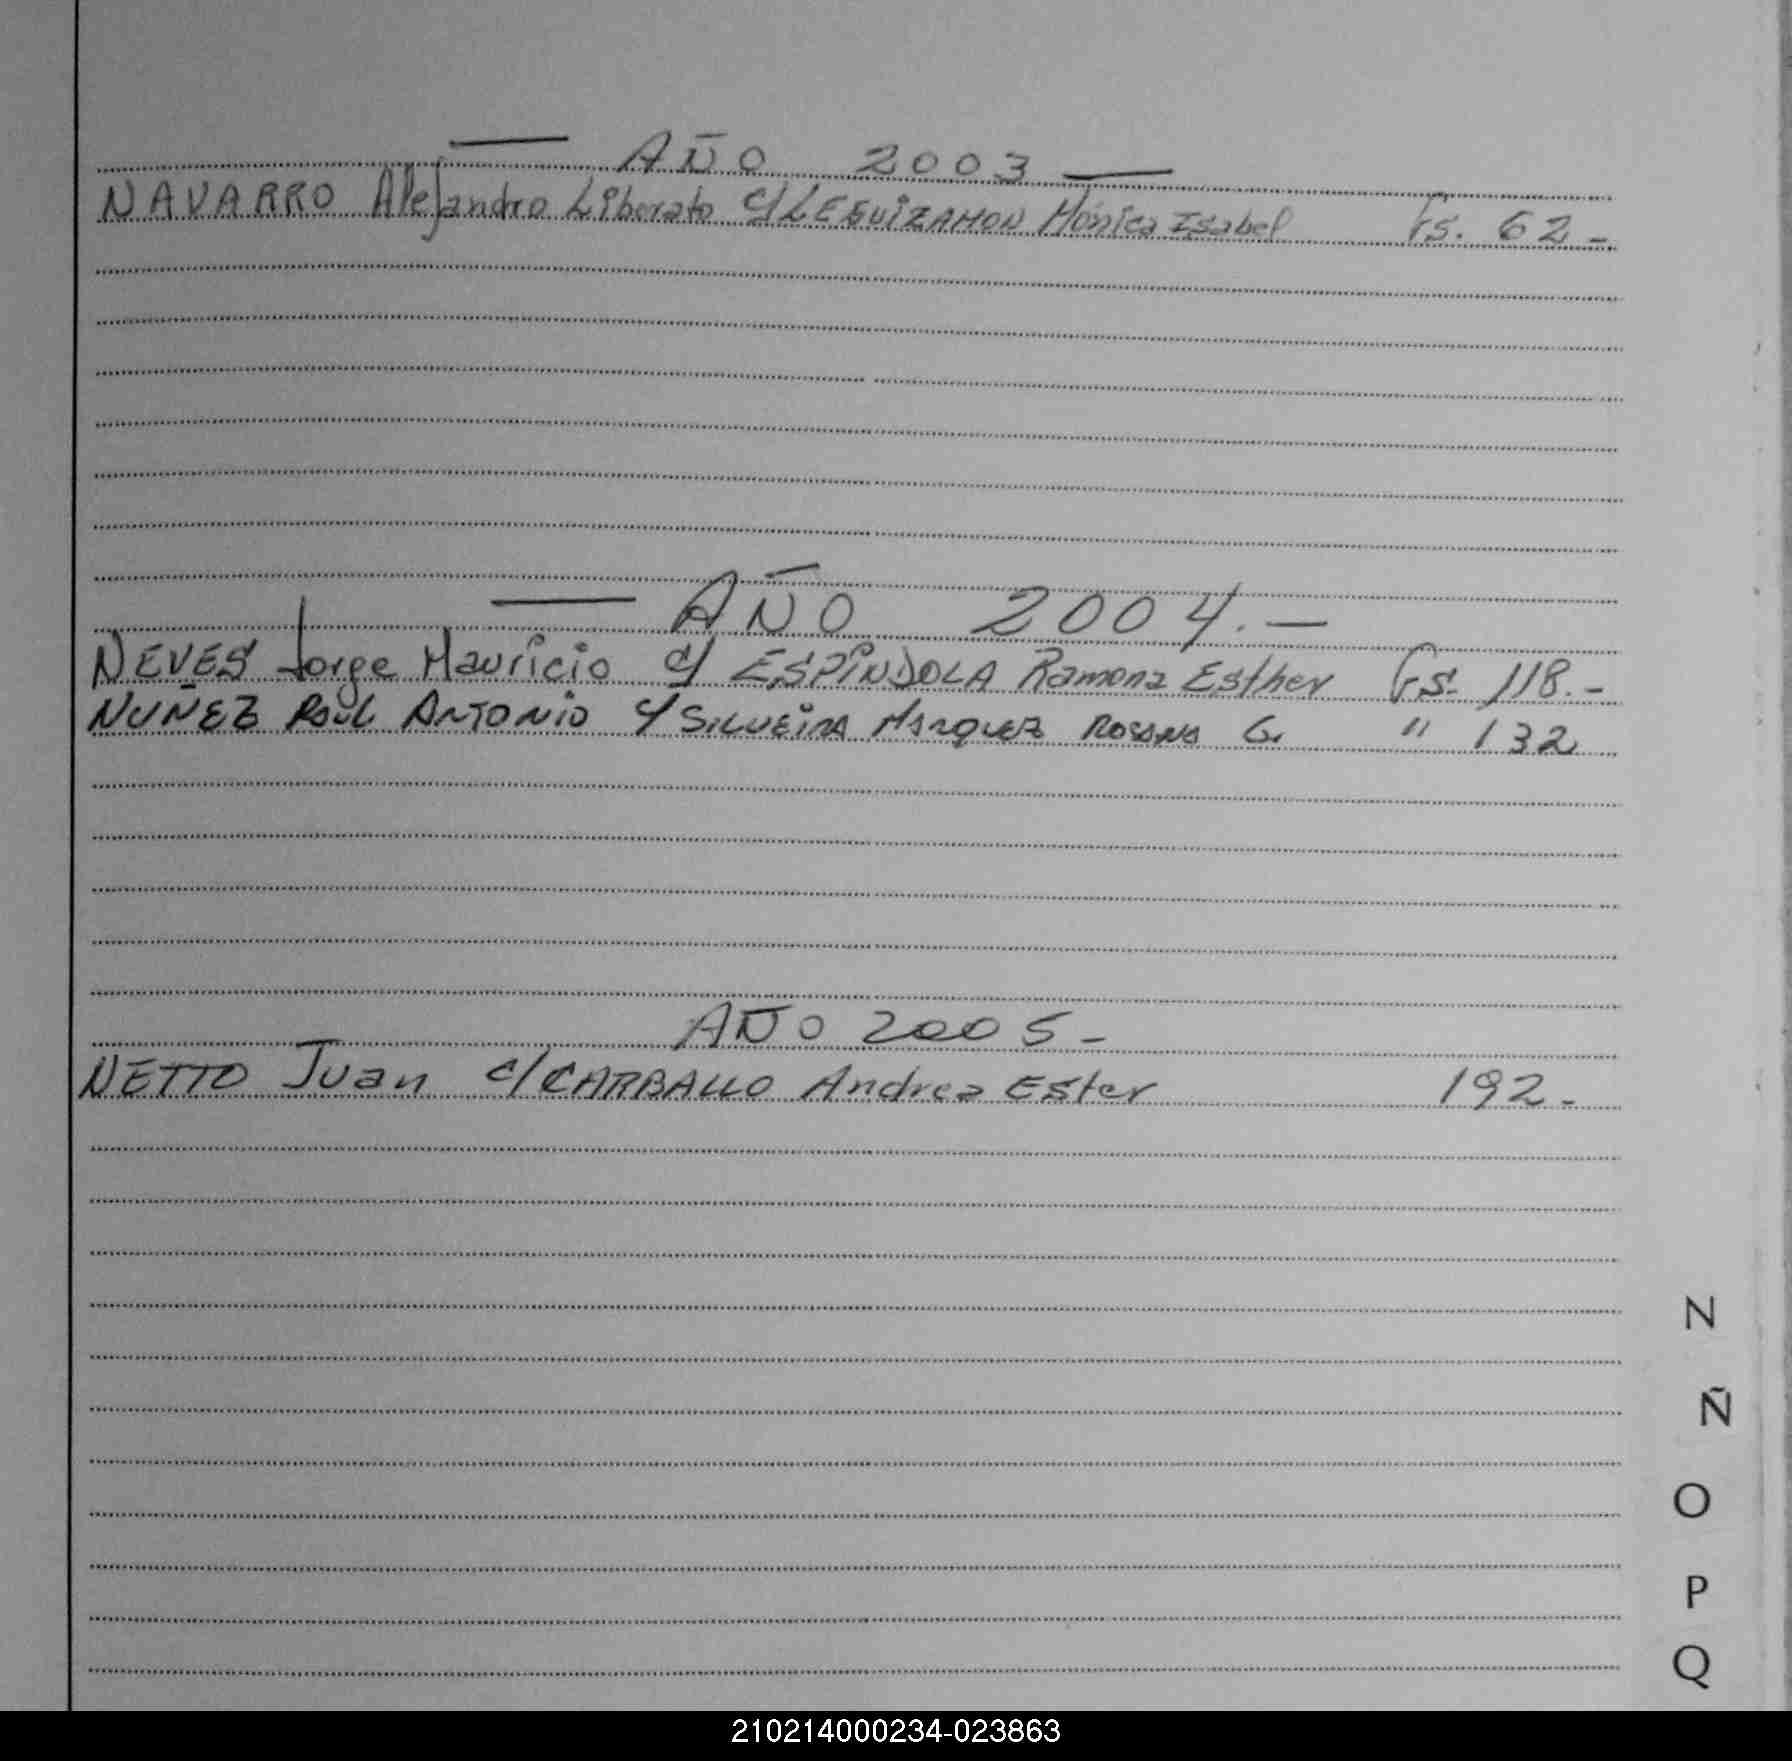 — AÑO 2003 —
NAVARRO Alejandro Liberato c/ LEGUIZAMON Mónica Isabel Fs. 62 -
— AÑO 2004. —
NEVES Jorge Mauricio c/ ESPÍNDOLA Ramona Esther Fs. 118.-
NUÑEZ RAÚL ANTONIO c/ SILVEIRA MARQUEZ ROSANA G. " 132
AÑO 2005 -
NETTO Juan c/ CARBALLO Andrea Ester 192.-
N
Ñ
O
P
Q
210214000234-023863